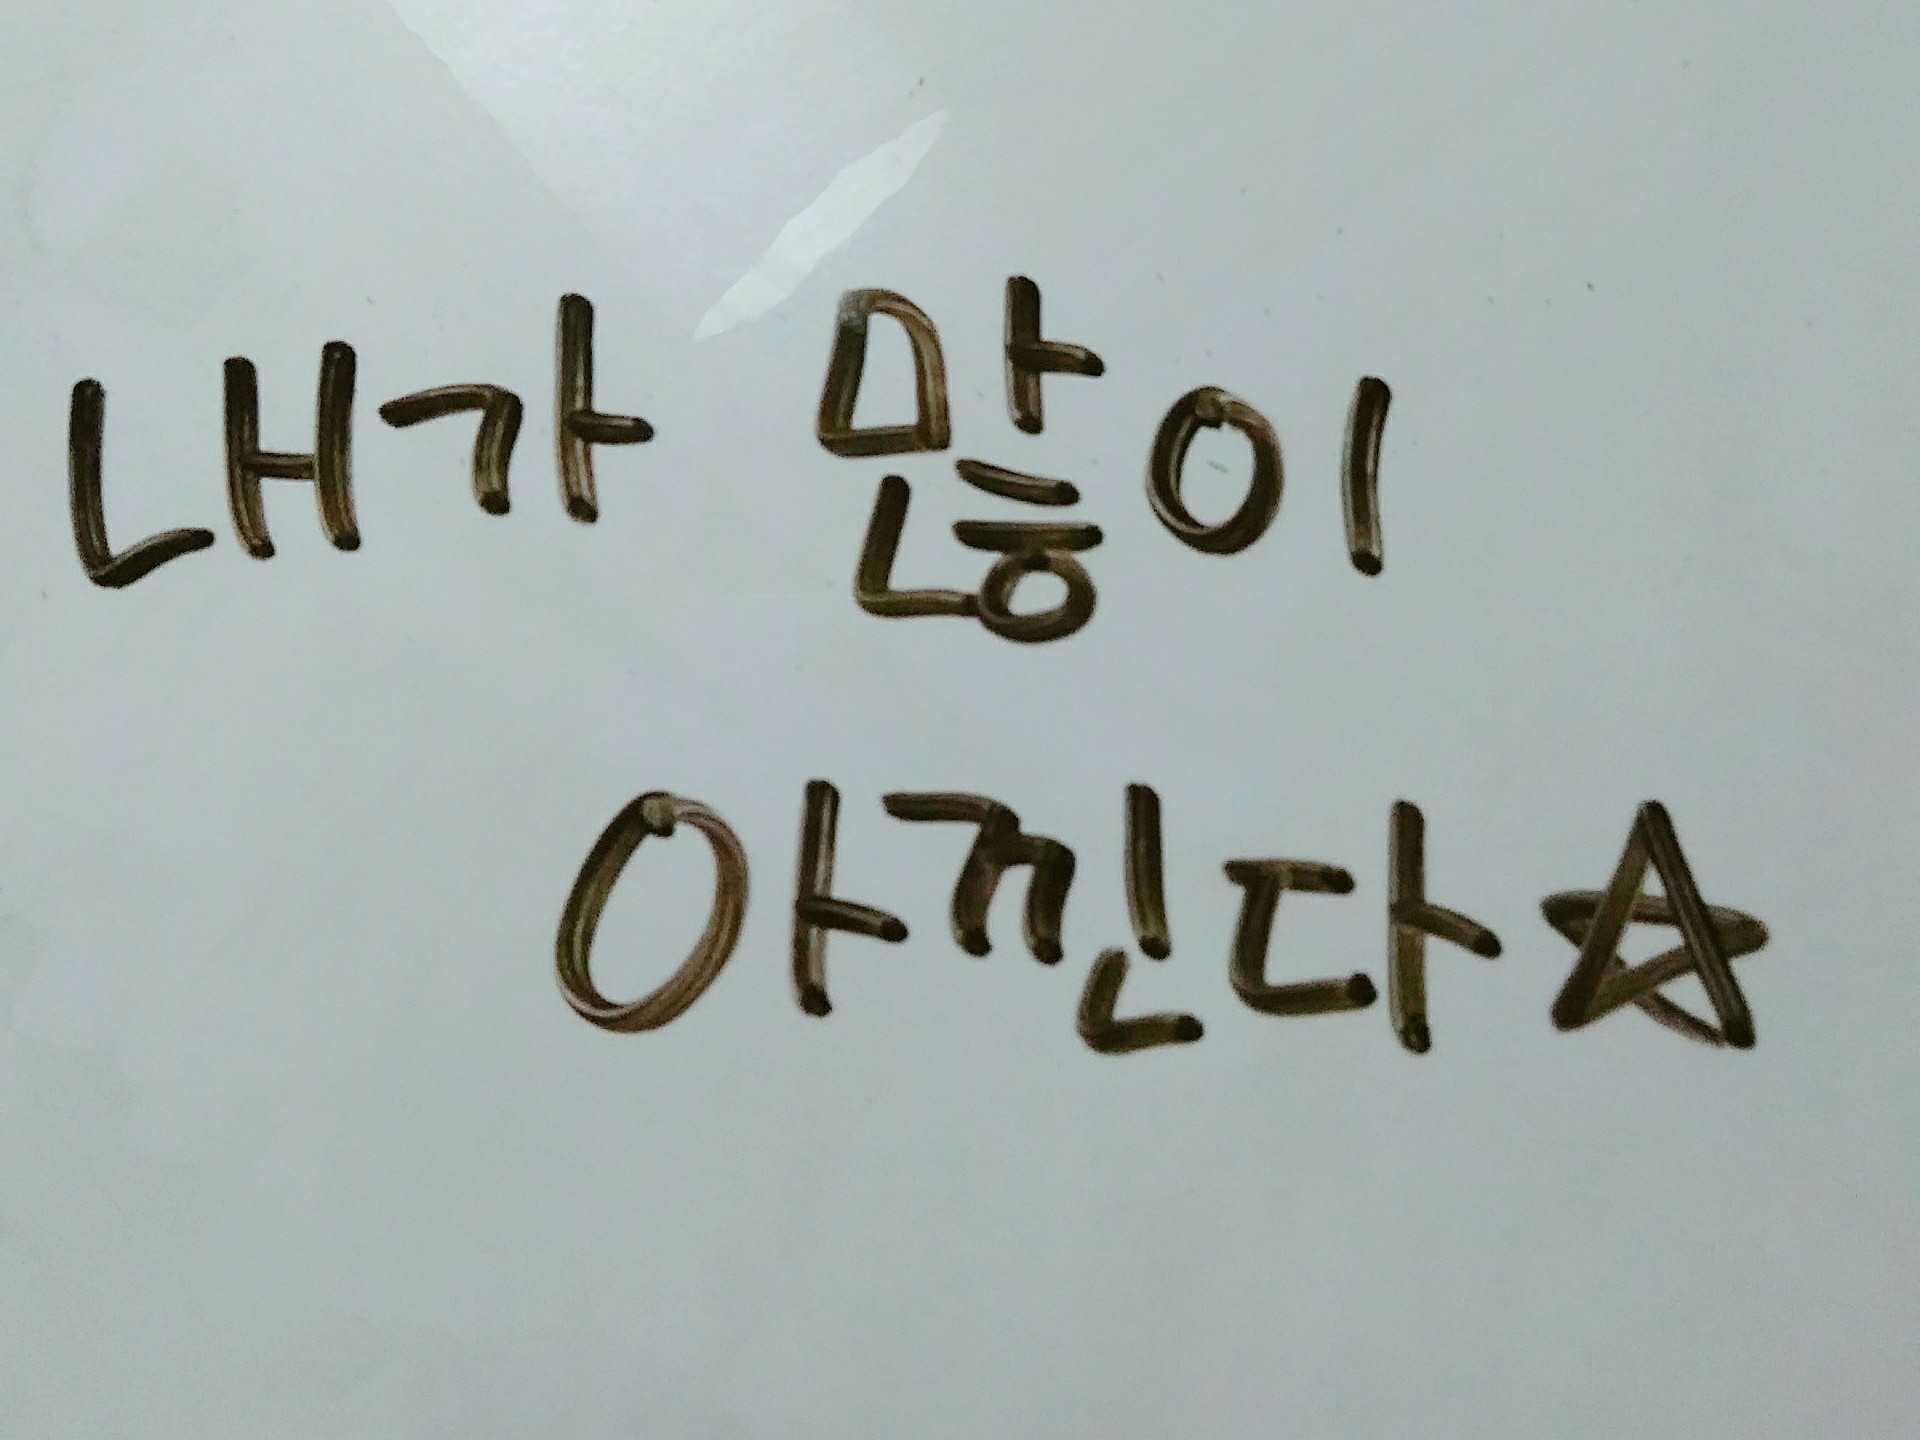 내가 많이
아낀다☆